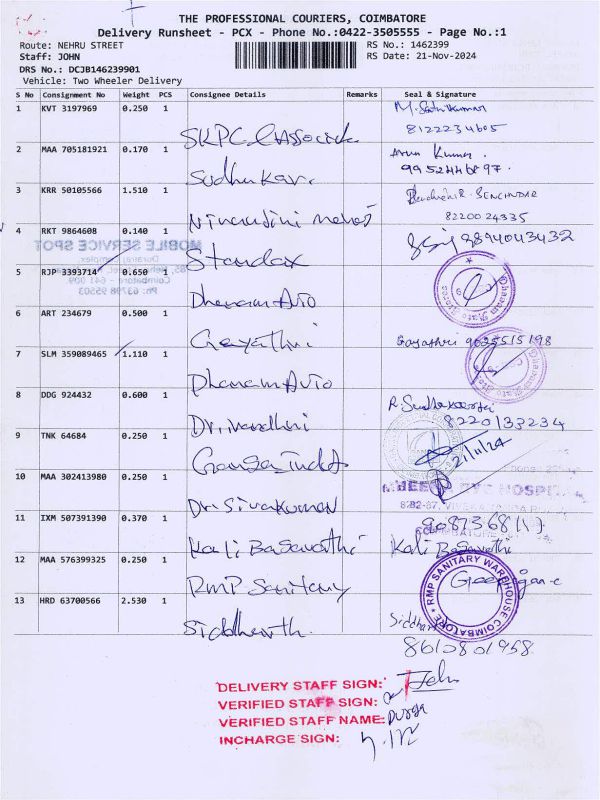 THE PROFESSIONAL COURIERS, COIMBATORE
Delivery Runsheet - PCX - Phone No.:0422-3505555 - Page No.:1
Route: NEHRU STREET RS No.: 1462399
Staff: JOHN RS Date: 21-Nov-2024
DRS No.: DCJB146239901
Vehicle: Two Wheeler Delivery
S No Consignment No Weight PCS Consignee Details Remarks Seal & Signature
1 KVT 3197969 0.250 1
SKPC & Associate
8122234605
2 MAA 705181921 0.170 1 Arun Kumar.
Sudhukar. 9952446897.
3 KRR 50105566 1.510 1
8220024335
4 RKT 9864608 0.140 1
Standax 9894043432
MOBILE SERVICE SPOT
5 RJP 3393714 0.650 1
Coimbatore - 641 009
Ph: 63798 95503
Dhanam Auto
6 ART 234679 0.500 1
Gayathri Gayathri 9625515198
7 SLM 359089465 1.110 1
Dhanam Auto
8 DDG 924432 0.600 1
8220133234
9 TNK 64684 0.250 1
21/11/24
10 MAA 302413980 0.250 1
Dr. Sivakumar
11 IXM 507391390 0.370 1
Kali Basavathi Kali Basavathi
12 MAA 576399325 0.250 1
RMP Sanitary
RMP SANITARY WAREHOUSE COIMBATORE
13 HRD 63700566 2.530 1
Siddharth. Siddharth
8610801958
DELIVERY STAFF SIGN: John
VERIFIED STAFF SIGN:
VERIFIED STAFF NAME: Durga
INCHARGE SIGN: